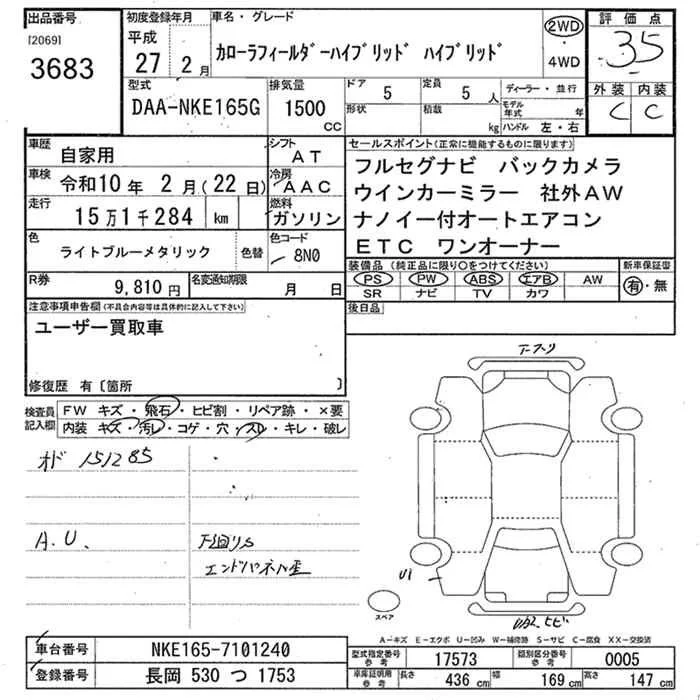 出品番号 初度登録年月 車名・グレード 評価点
[2069] 平成 カローラフィールダーハイブリッド ハイブリッド 2WD 3.5
3683 27 2月 ・ 4WD
型式 排気量 ドア 5 定員 5人 ディーラー・並行 外装 内装
DAA-NKE165G 1500 CC 形状 積載 kg モデル年式 年 C C
ハンドル 左・右
車歴 自家用 シフト AT セールスポイント(正常に機能するものに限ります)
車検 令和10年 2月(22日) 冷房 AAC フルセグナビ バックカメラ
走行 15万1千284 km 燃料 ガソリン ウインカーミラー 社外AW
色 ライトブルーメタリック 色替 色コード 8N0 ナノイー付オートエアコン
ETC ワンオーナー
R券 9,810円 名変通知期限 月 日 装備品(純正品に限り○をつけてください) 新車保証書
PS PW ABS エアB AW 有・無
SR ナビ TV カワ
注意事項申告欄(不具合内容等は具体的に記入して下さい) 後日品
ユーザー買取車
修復歴 有〔箇所 〕
検査員記入欄 FW キズ・飛石・ヒビ割・リペア跡・×要
内装 キズ・汚レ・コゲ・穴・スレ・キレ・破レ
オド 151285
A.U. 下回りS
エンドパネル歪
U1
スペア
A-キズ E-エクボ U-凹み W-補修跡 S-サビ C-腐食 XX-交換済
車台番号 NKE165-7101240 型式指定番号 参考 17573 類別区分番号 参考 0005
登録番号 長岡 530 つ 1753 車庫証明用 参考 長さ 436 cm 幅 169 cm 高さ 147 cm